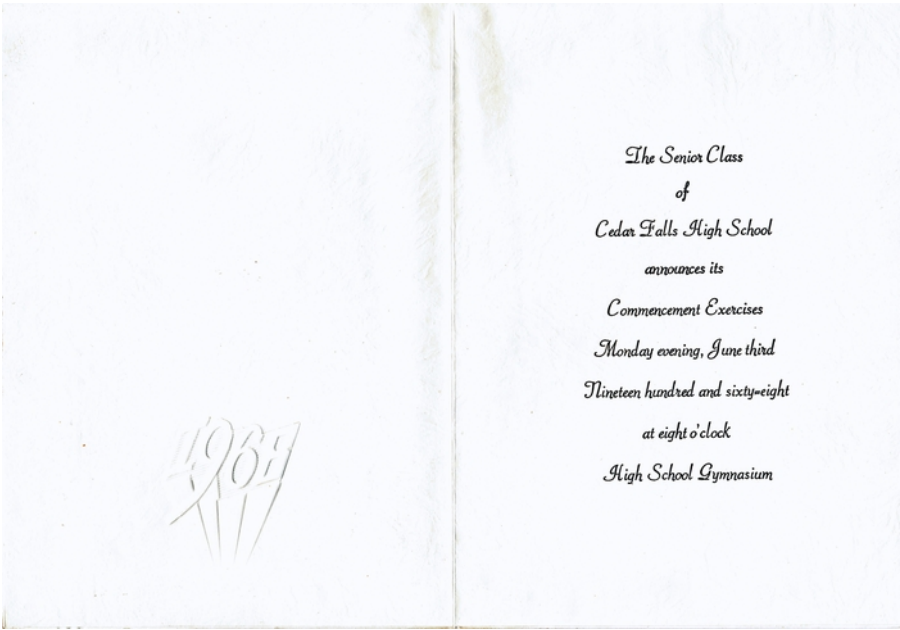 The Senior Class
of
Cedar Falls High School
announces its
Commencement Exercises
Monday evening, June third
Nineteen hundred and sixty-eight
at eight o'clock
High School Gymnasium